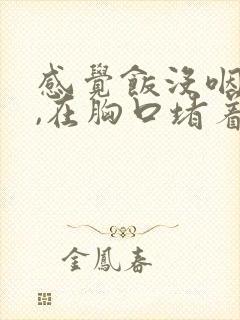 感覺飯沒咽
,在胸口堵着
金鳳春